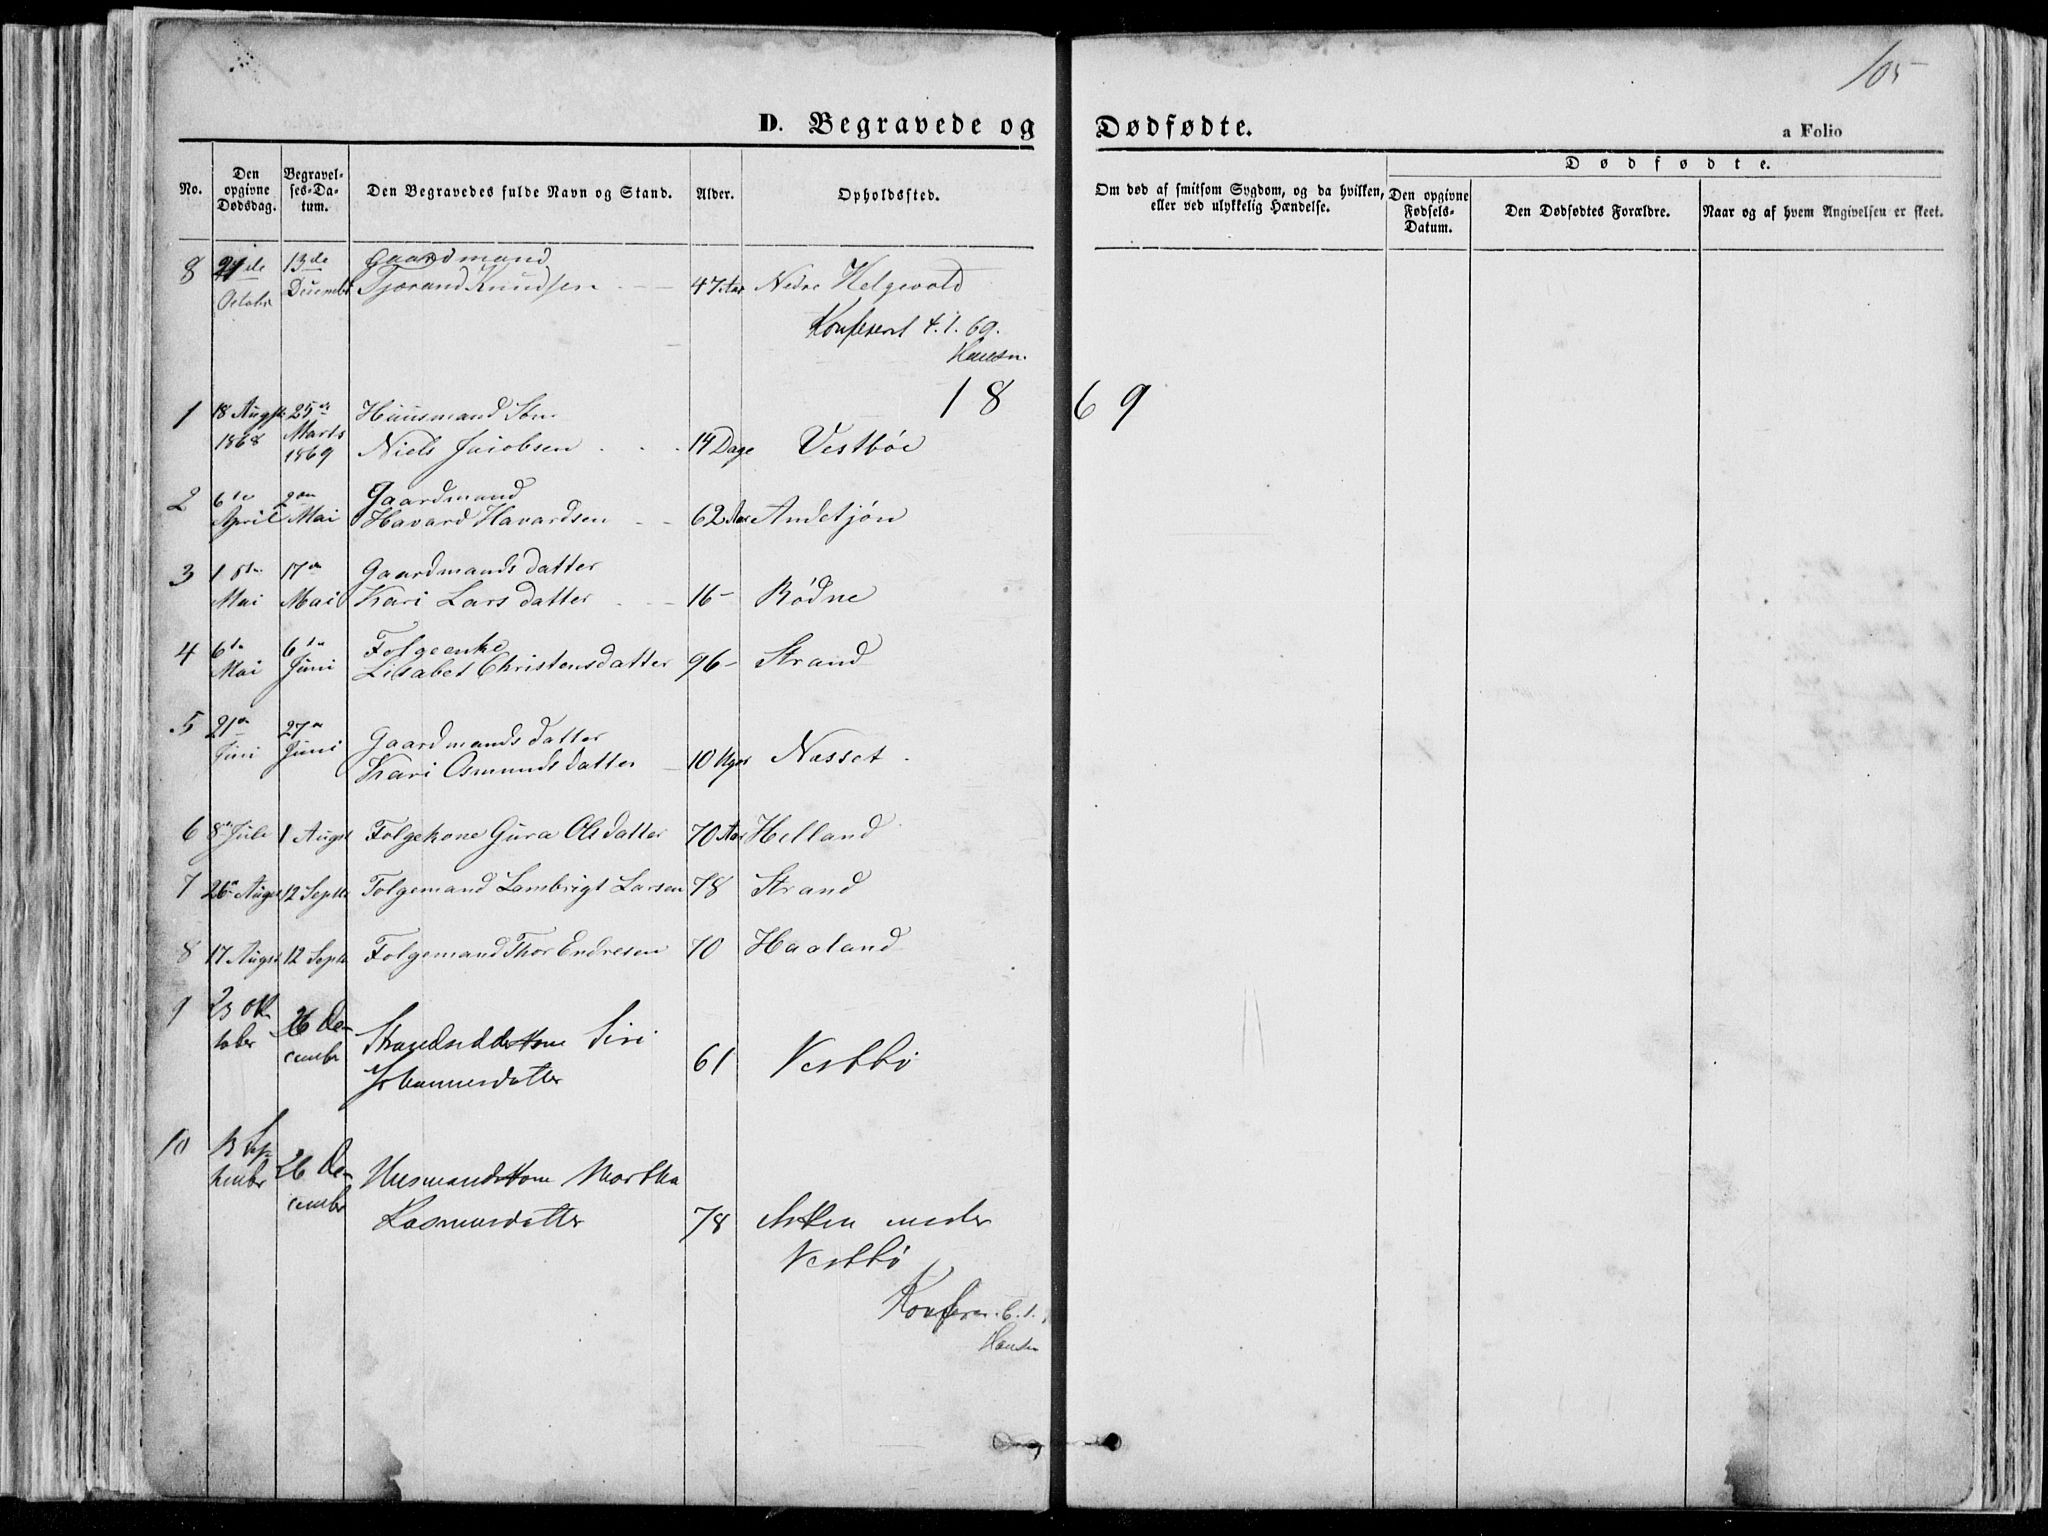 105
D. Begravede og Dødfødte.
a Folio
No.
Den opgivne Dødsdag.
Begravelses-Datum.
Den Begravedes fulde Navn og Stand.
Alder.
Opholdssted.
Om død af smitsom Sygdom, og da hvilken, eller ved ulykkelig Hændelse.
Dødfødte.
Den opgivne Fødsels-Datum.
Den Dødfødtes Forældre.
Naar og af hvem Angivelsen er skeet.
8 13de Gaardmand
Tjærand Knudsen 47 Aar Nedre Helgevold
Konfereret 4.1.69.
Hansen.
1869
1 18 August 25de Huusmand Søn
1868 Marts 1869 Niels Jacobsen 14 Dage Vestbøe
2 6te 2den Gaardmand
April Mai Havard Havardsen 62 Aar Andetjøn
3 17de Gaardmands datter
Mai Mai Kari Lars datter 16 - Rødne
4 6te 6te Folgeenke
Mai Juni Lisabet Christensdatter 96 - Strand
5 21de 27de Gaardmands datter
Juni Juni Kari Osmunds datter 10 Uger Nasset
6 8de Juli 1 August Folgekone Gura Olsdatter 70 Aar Helland
7 26de August 12 Septb Folgemand Lambrigt Larsen 78 Strand
8 17 August 12 Septb Folgemand Thor Endresen 70 Haaland
9 23 Oktober 26 December Strandsidderkone Siri
Johannesdatter 61 Vestbø
10 26 December Husmandskone Martha
Rasmusdatter 78 under
Vestbø
Konferer. 6.1.
Hansen